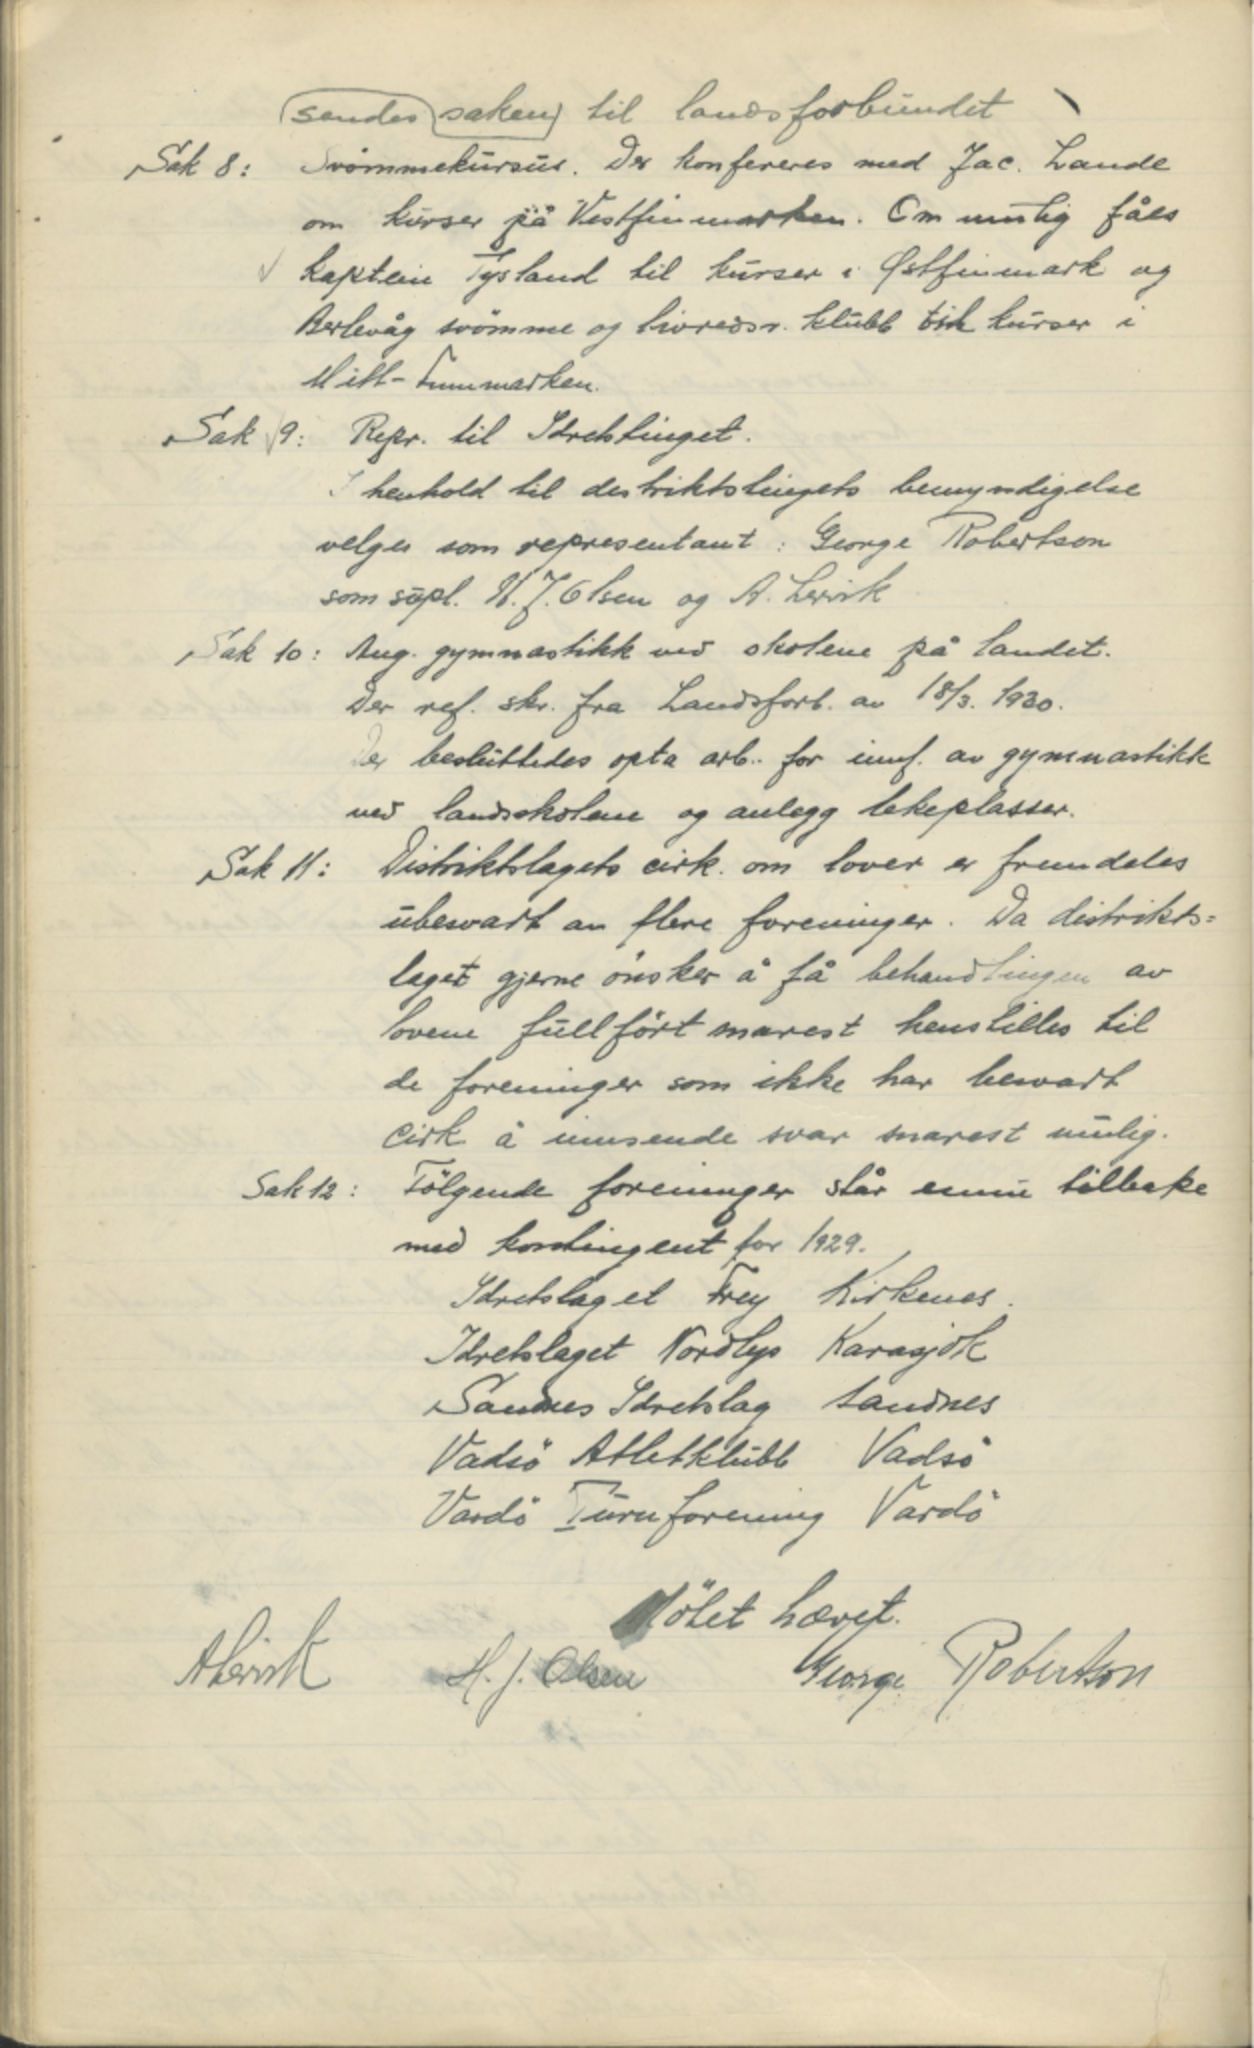 sendes saken til landsforbundet
Sak 8: Svømmekursus. Der konfereres med Jac. Lande
om kurser på Vestfinmarken. Om mulig fåes
kaptein Tysland til kurser i Østfinmark og
Berlevåg svömme og livredn. klubb til kurser i
Mitt-Finnmarken.
Sak 9: Repr. til Idretstinget.
I henhold til destriktstingets bemyndigelse
velges som representant: George Robertson
som supl. H. J. Olsen og A. Lervik
Sak 10: Ang. gymnastikk ved skolene på landet.
Der ref. skr. fra Landsforb. av 18/3. 1930.
Der besluttedes opta arb. for innf. av gymnastikk
ved landsskolene og anlegg lekeplasser.
Sak 11: Distriktslagets cirk. om lover er fremdeles
ubesvart av flere foreninger. Da distrikts=
laget gjerne önsker å få behandlingen av
lovene fullfört snarest henstilles til
de foreninger som ikke har besvart
cirk å innsende svar snarest mulig.
Sak 12: Fölgende foreninger står ennu tilbake
med kontingent for 1929.
Idretslaget Frey Kirkenes.
Idretslaget Nordlys Karasjok
Sandnes Idretslag Sandnes
Vadsö Atletklubb Vadsö
Vardö Turnforening Vardö
Mötet hævet.
A Lervik H. J. Olsen George Robertson